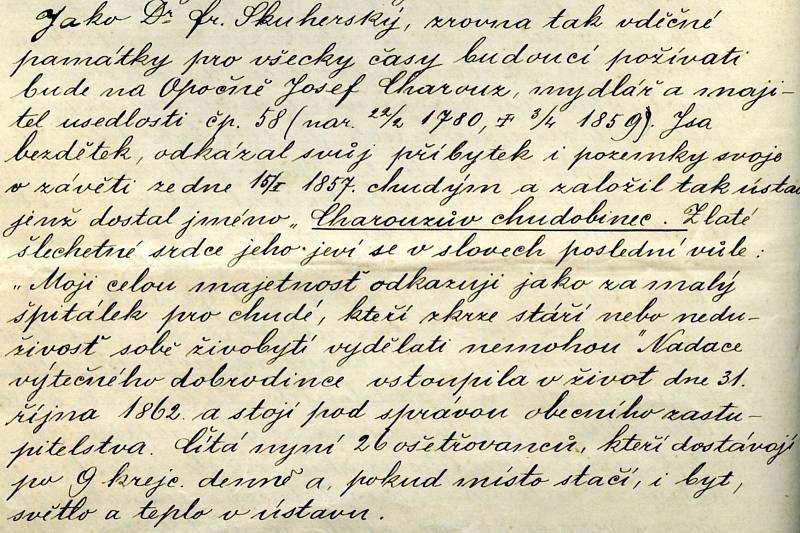 Jako Dr. fr. Skuherský, zrovna tak vděčné
památky pro všecky časy budoucí požívati
bude na Opočně Josef Charouz, mydlář a maji-
tel usedlosti čp. 58 (nar. 22/2 1780, † 3/4 1859). Jsa
bezdětek, odkázal svůj příbytek i pozemky svoje
v závěti ze dne 15/I 1857. chudým a založil tak ústav
jenž dostal jméno „Charouzův chudobinec. Zlaté
šlechetné srdce jeho jeví se v slovech poslední vůle:
„Moji celou majetnosť odkazuji jako za malý
špitálek pro chudé, kteří zkrze stáří nebo nedu-
živosť sobě živobytí vydělati nemohou" Nadace
výtečného dobrodince vstoupila v život dne 31.
října 1862. a stojí pod správou obecního zastu-
pitelstva. Čítá nyní 26 ošetřovanců, kteří dostávají
po 9 krejc. denně a, pokud místo stačí, i byt,
světlo a teplo v ústavu.